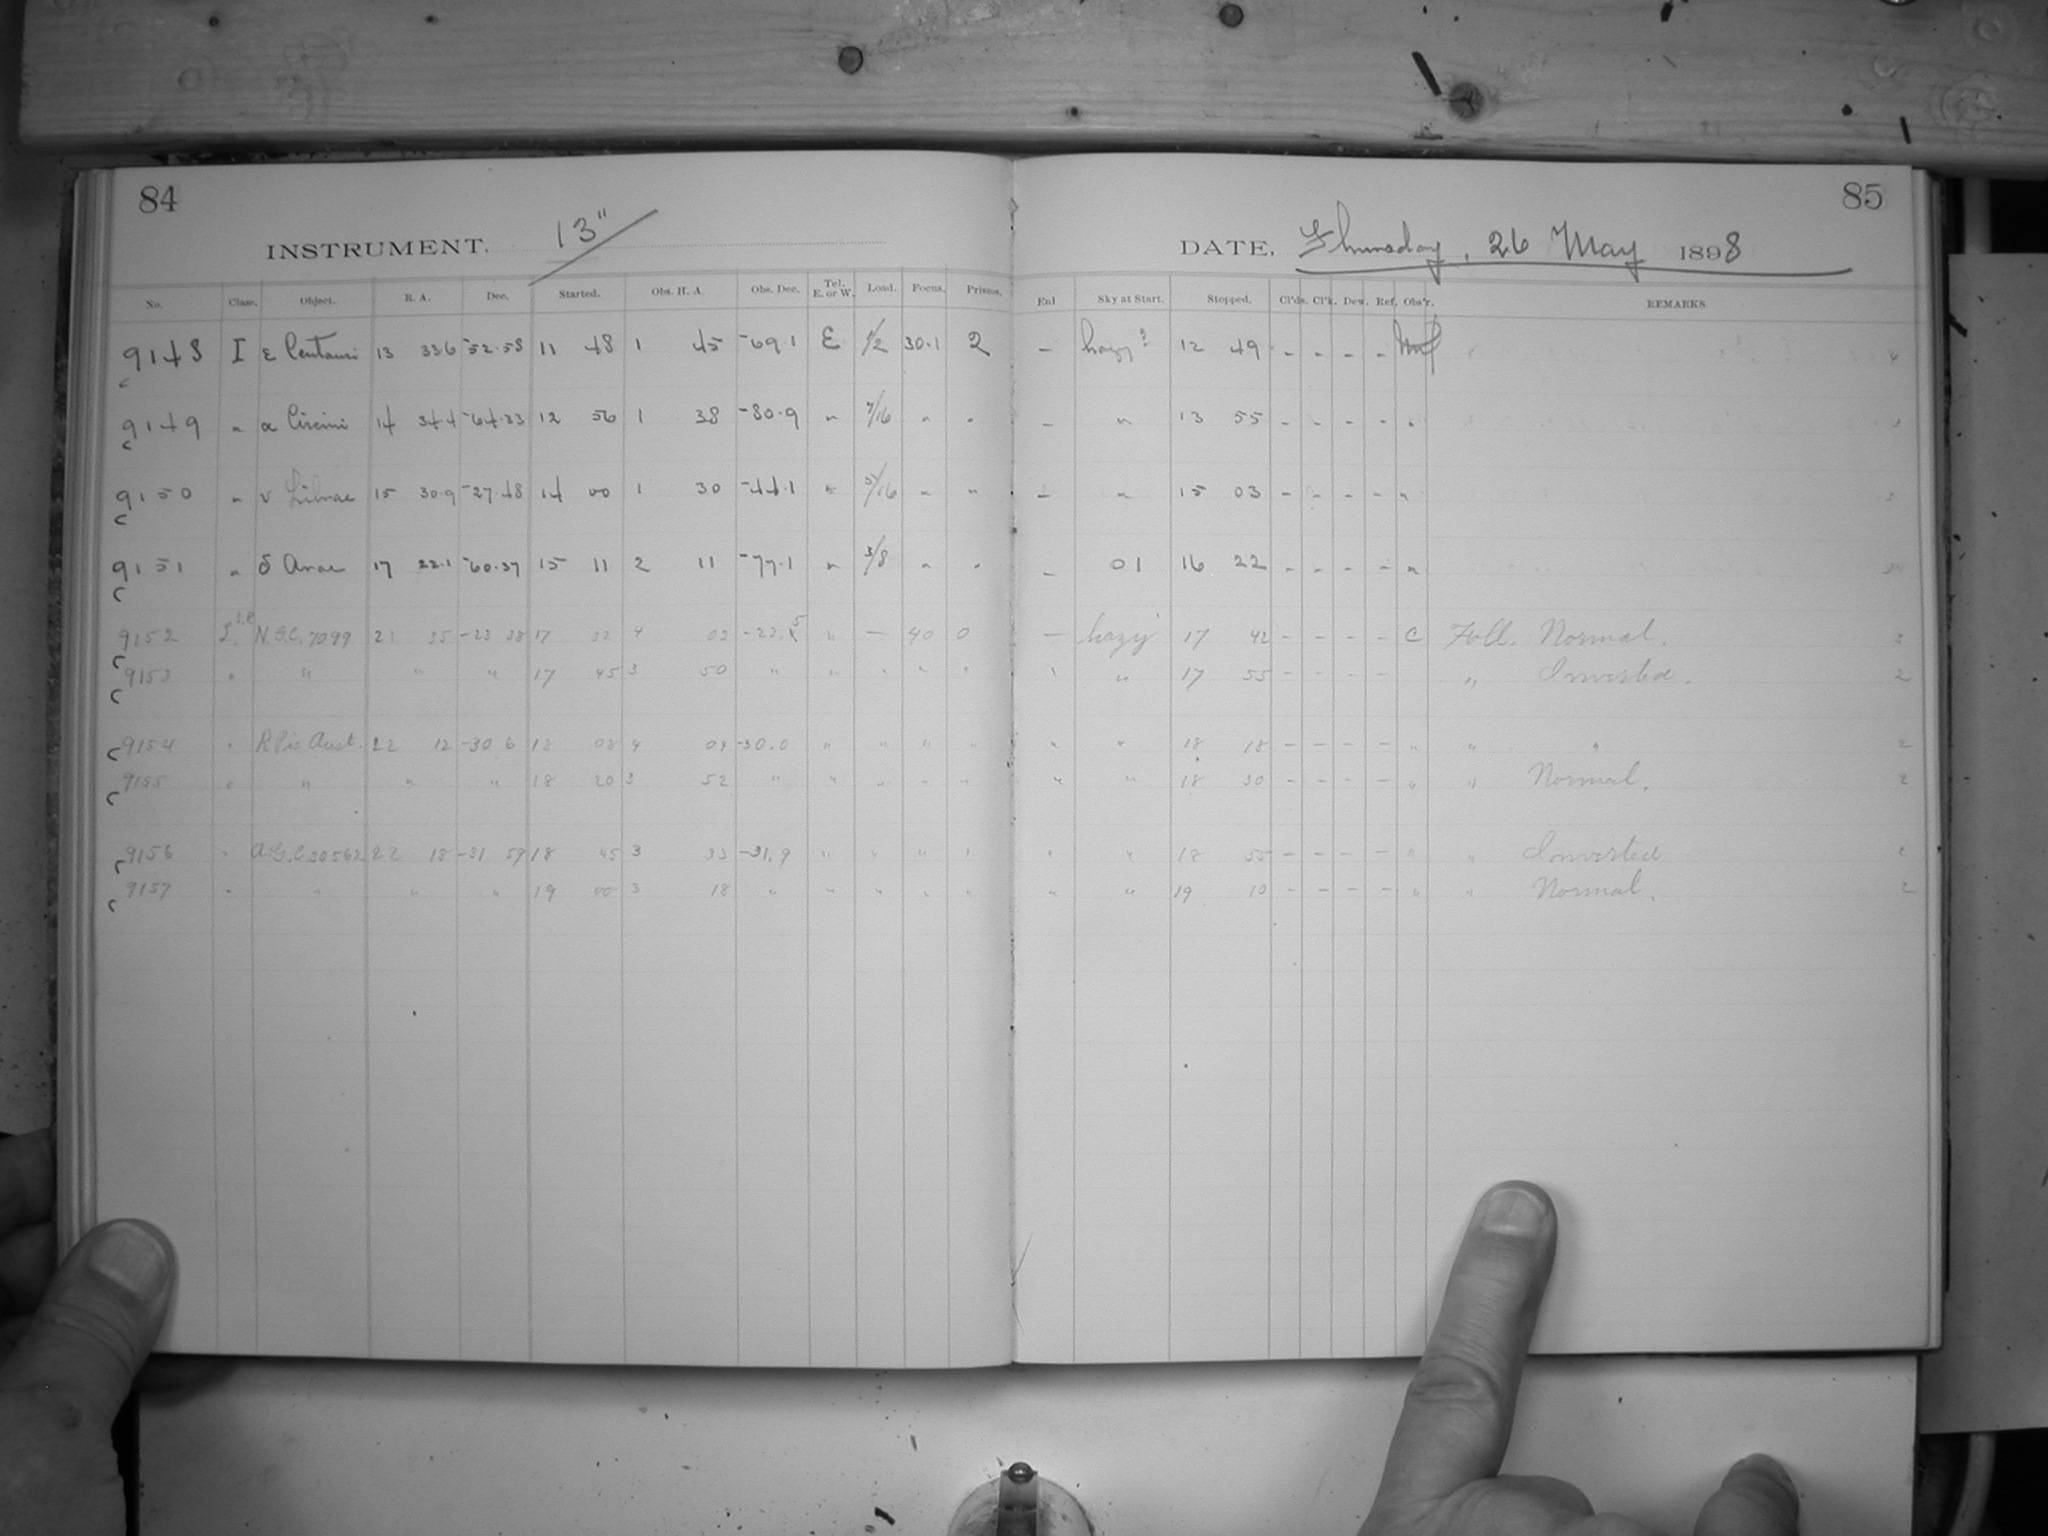 84
85
INSTRUMENT. 13"
DATE, Thursday, 26 May 1898
No. Class. Object. R. A. Dec. Started. Obs. H. A. Obs. Dec. Tel. E. or W. Load. Focus. Prisms. Enl Sky at Start. Stopped. Cl'ds. Cl'k. Dew. Ref. Obs'r. REMARKS
9148 I ε Centauri 13 33.6 -52.58 11 48 1 45 -69.1 E 1/2 30.1 2 - hazy? 12 49 - - - -
9149 " α Circini 14 34.4 -64.33 12 56 1 38 -80.9 " 7/16 " " - " 13 55 - - - - "
9150 " ν Librae 15 30.9 -27.48 14 00 1 30 -44.1 " 5/16 " " - " 15 03 - - - - "
9151 " δ Arae 17 22.1 -60.37 15 11 2 11 -77.1 " 3/8 " " - 01 16 22 - - - - "
9152 N.G.C. 7099 21 35 -23 38 17 32 4 03 " - 40 0 - hazy 17 42 - - - - C Foll. Normal. 3
9153 " " " " 17 45 3 50 " " " " " " " 17 55 - - - - " Inverted. 2
9154 " R Pis Aust. 22 12 -30 6 18 08 4 04 -30.0 " " " " " " 18 18 - - - - " " " 2
9155 " " " " 18 20 3 52 " " " " " " " 18 30 - - - - " " Normal. 2
9156 " A.G.C. 30562 22 18 -31 59 18 45 3 33 -31.9 " " " " " " 18 55 - - - - " " Inverted 2
9157 " " " " 19 00 3 18 " " " " " " " 19 10 - - - - " " Normal. 2